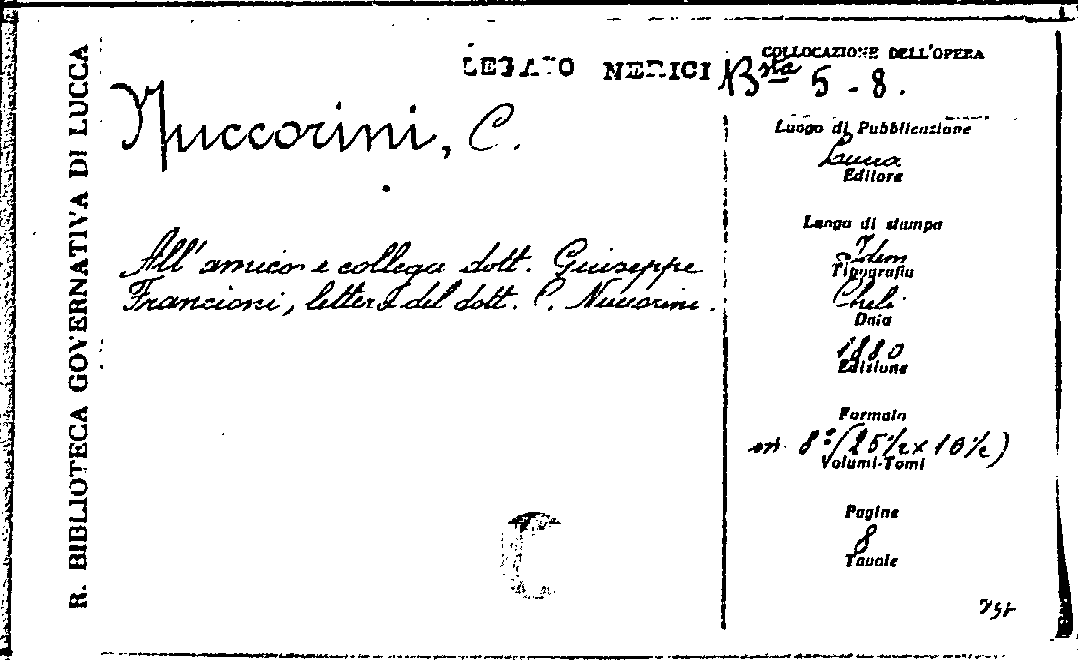 R. BIBLIOTECA GOVERNATIVA DI LUCCA
LEGATO NERICI
COLLOCAZIONE DELL'OPERA
Bta 5 - 8.
Nuccorini, C.
All'amico e collega dott. Giuseppe
Francioni, lettera del dott. C. Nuccorini.
Luogo di Pubblicazione
Lucca
Editore
Luogo di stampa
Idem
Tipografia
Cheli
Data
1880
Edizione
Formato
in 8° (25½ x 16½)
Volumi-Tomi
Pagine
8
Tavole
C